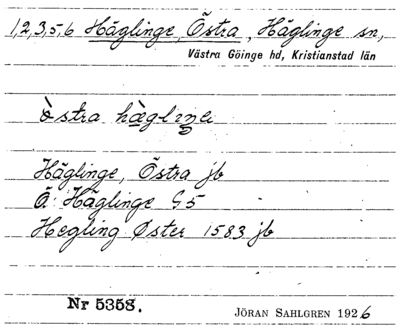 1,2,3,5,6 Häglinge, Östra, Häglinge sn,
Västra Göinge hd, Kristianstad län
östra hä̀gliŋe
Häglinge, Östra jb
Ö. Häglinge G5
Hegling Øster 1583 jb
Nr 5358.
JÖRAN SAHLGREN 1926